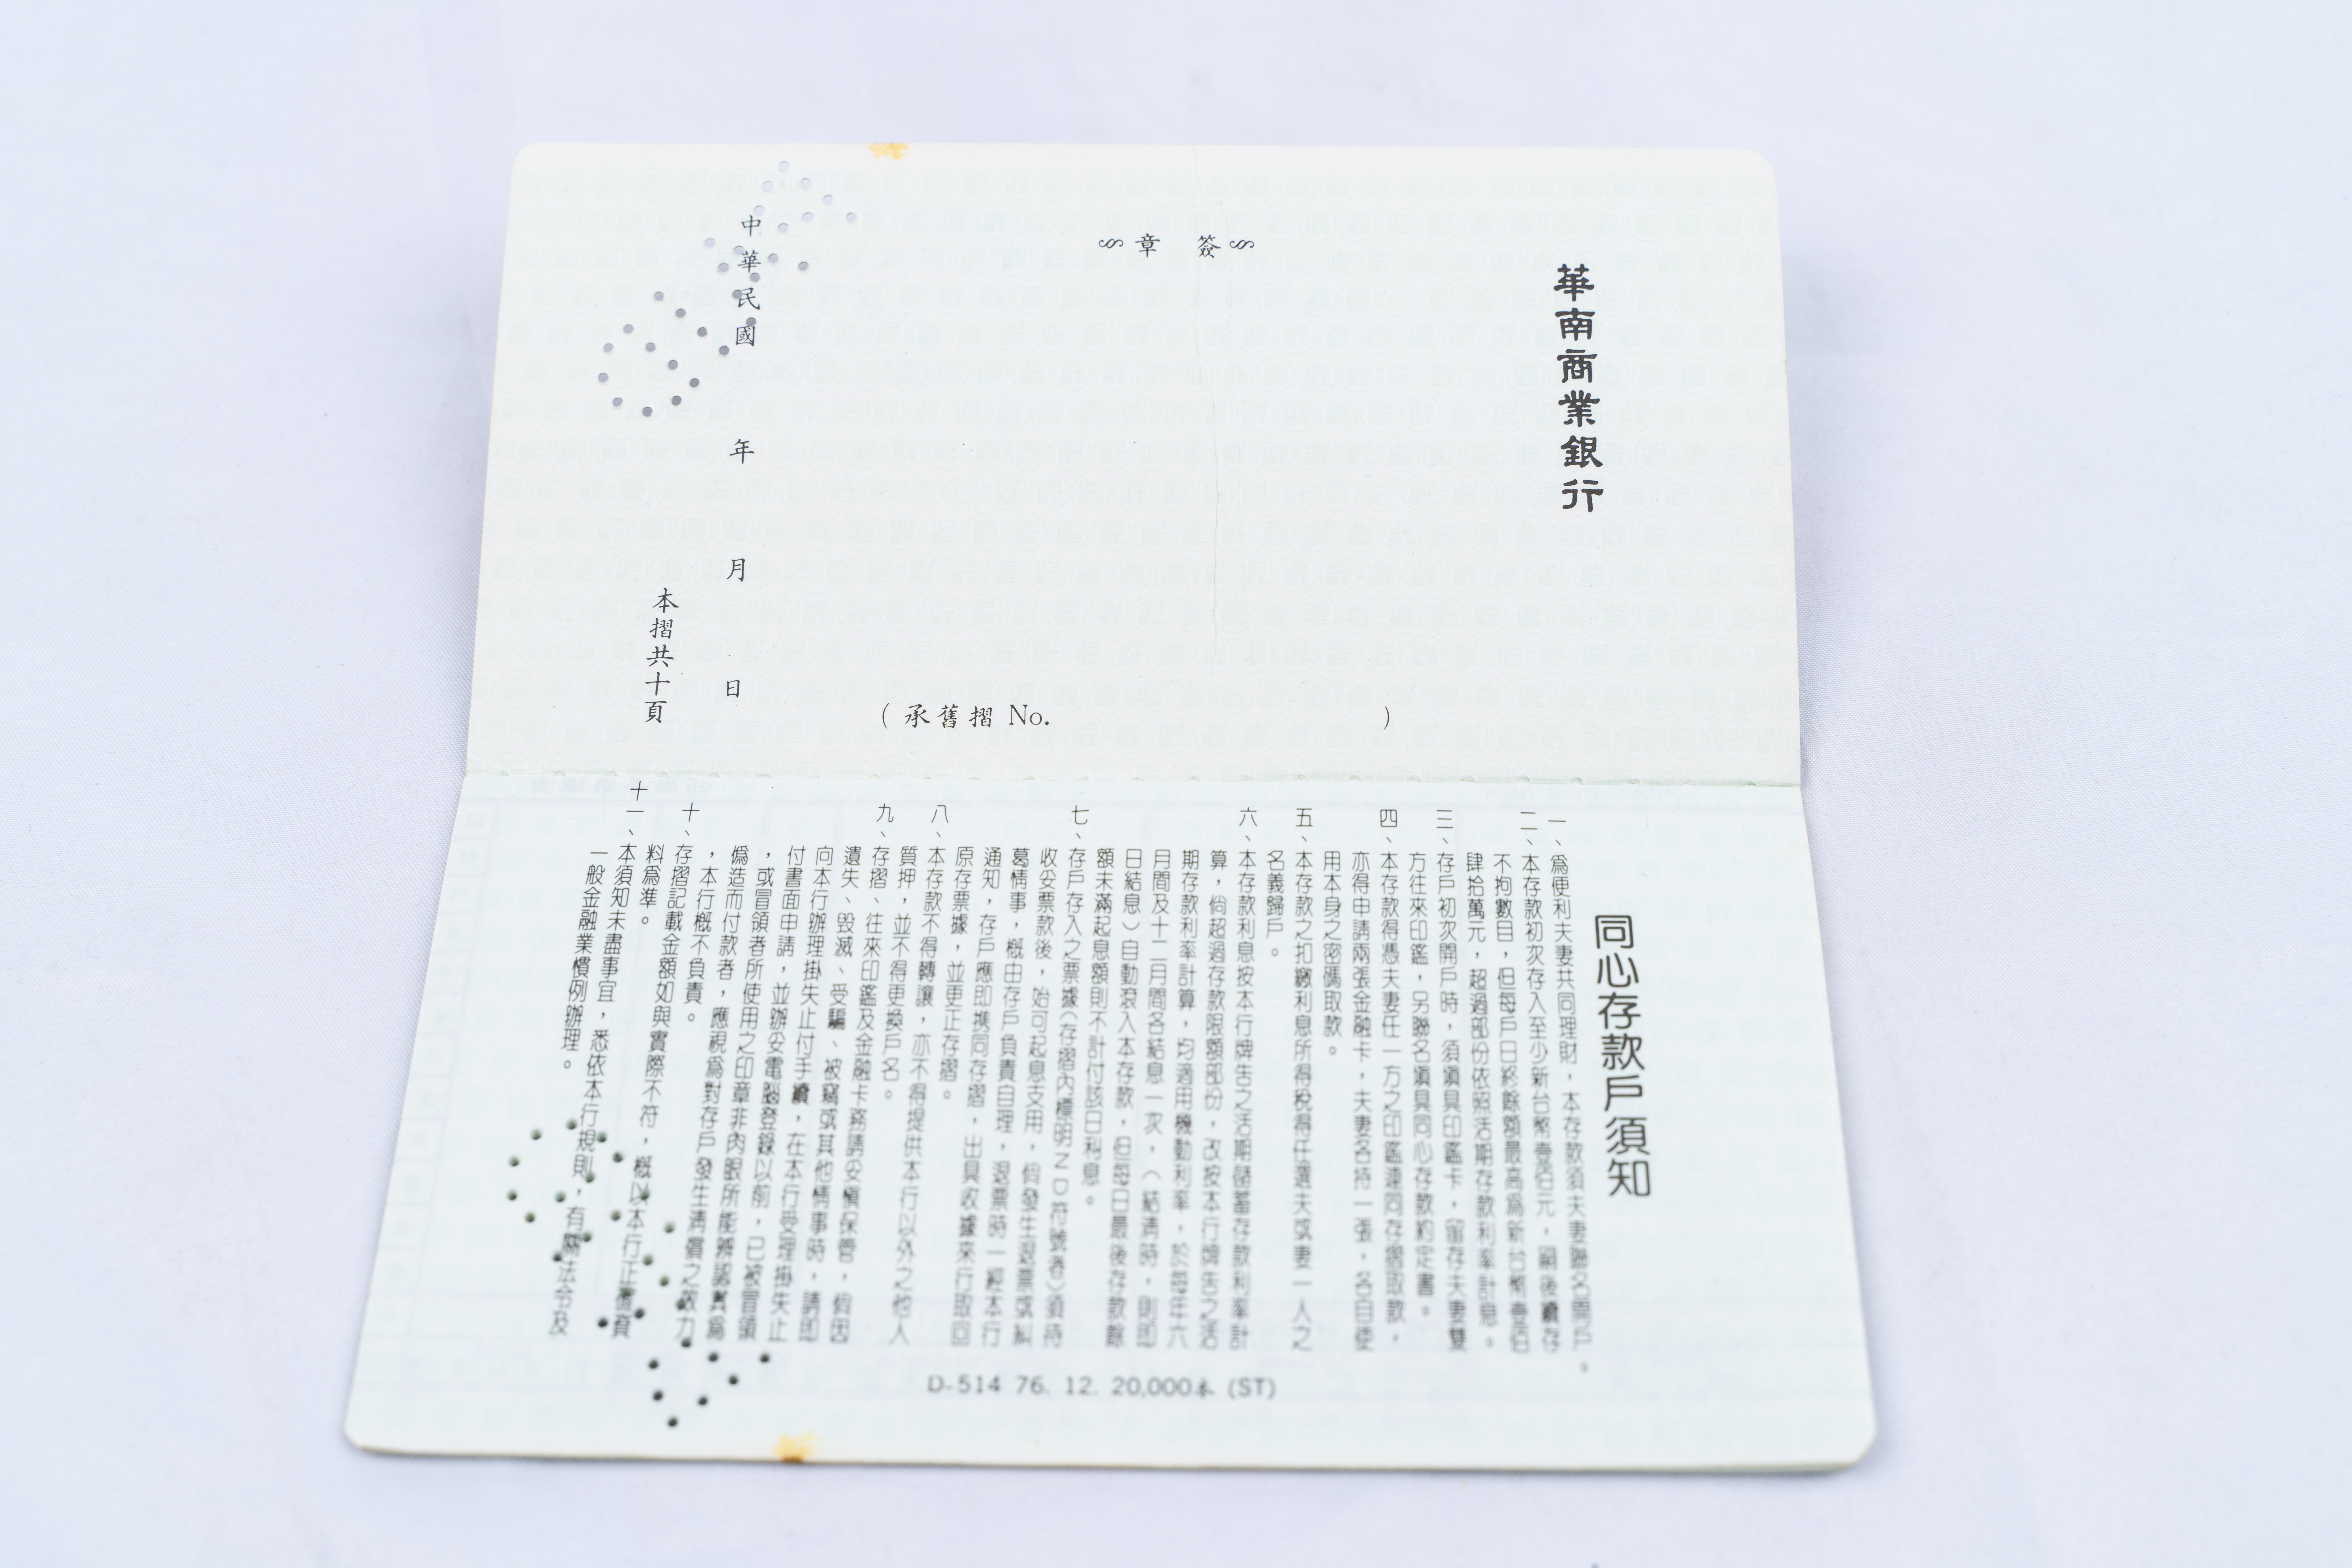 華南商業銀行
簽 章
(承舊摺 No. )
中華民國 年 月 日
本摺共十頁
同心存款戶須知
一、為便利夫妻共同理財，本存款須夫妻聯名開戶。
二、本存款初次存入至少新台幣壹佰元，嗣後續存
不拘數目，但每戶日終餘額最高為新台幣壹佰
肆拾萬元，超過部份依照活期存款利率計息。
三、存戶初次開戶時，須填具印鑑卡，留存夫妻雙
方往來印鑑，另聯名填具同心存款約定書。
四、本存款得憑夫妻任一方之印鑑連同存摺取款，
亦得申請兩張金融卡，夫妻各持一張，各自使
用本身之密碼取款。
五、本存款之扣繳利息所得稅得任選夫或妻一人之
名義歸戶。
六、本存款利息按本行牌告之活期儲蓄存款利率計
算，倘超過存款限額部份，改按本行牌告之活
期存款利率計算，均適用機動利率，於每年六
月間及十二月間各結息一次，（結清時，則即
日結息）自動滾入本存款，但每日最後存款餘
額未滿起息額則不計付該日利息。
七、存戶存入之票據（存摺內標明ＮＤ符號者）須待
收妥票款後，始可起息支用，倘發生退票或糾
葛情事，概由存戶負責自理，退票時一經本行
通知，存戶應即携同存摺，出具收據來行取回
原存票據，並更正存摺。
八、本存款不得轉讓，亦不得提供本行以外之他人
質押，並不得更換戶名。
九、存摺、往來印鑑及金融卡務請妥慎保管，倘因
遺失、毀滅、受騙、被竊或其他情事時，請即
向本行辦理掛失止付手續，在本行受理掛失止
付書面申請，並辦妥電腦登錄以前，已被冒領
，或冒領者所使用之印章非肉眼所能辨認其為
偽造而付款者，應視為對存戶發生清償之效力
，本行概不負責。
十、存摺記載金額如與實際不符，概以本行正確資
料為準。
十一、本須知未盡事宜，悉依本行規則，有關法令及
一般金融業慣例辦理。
D-514 76. 12. 20,000本 (ST)